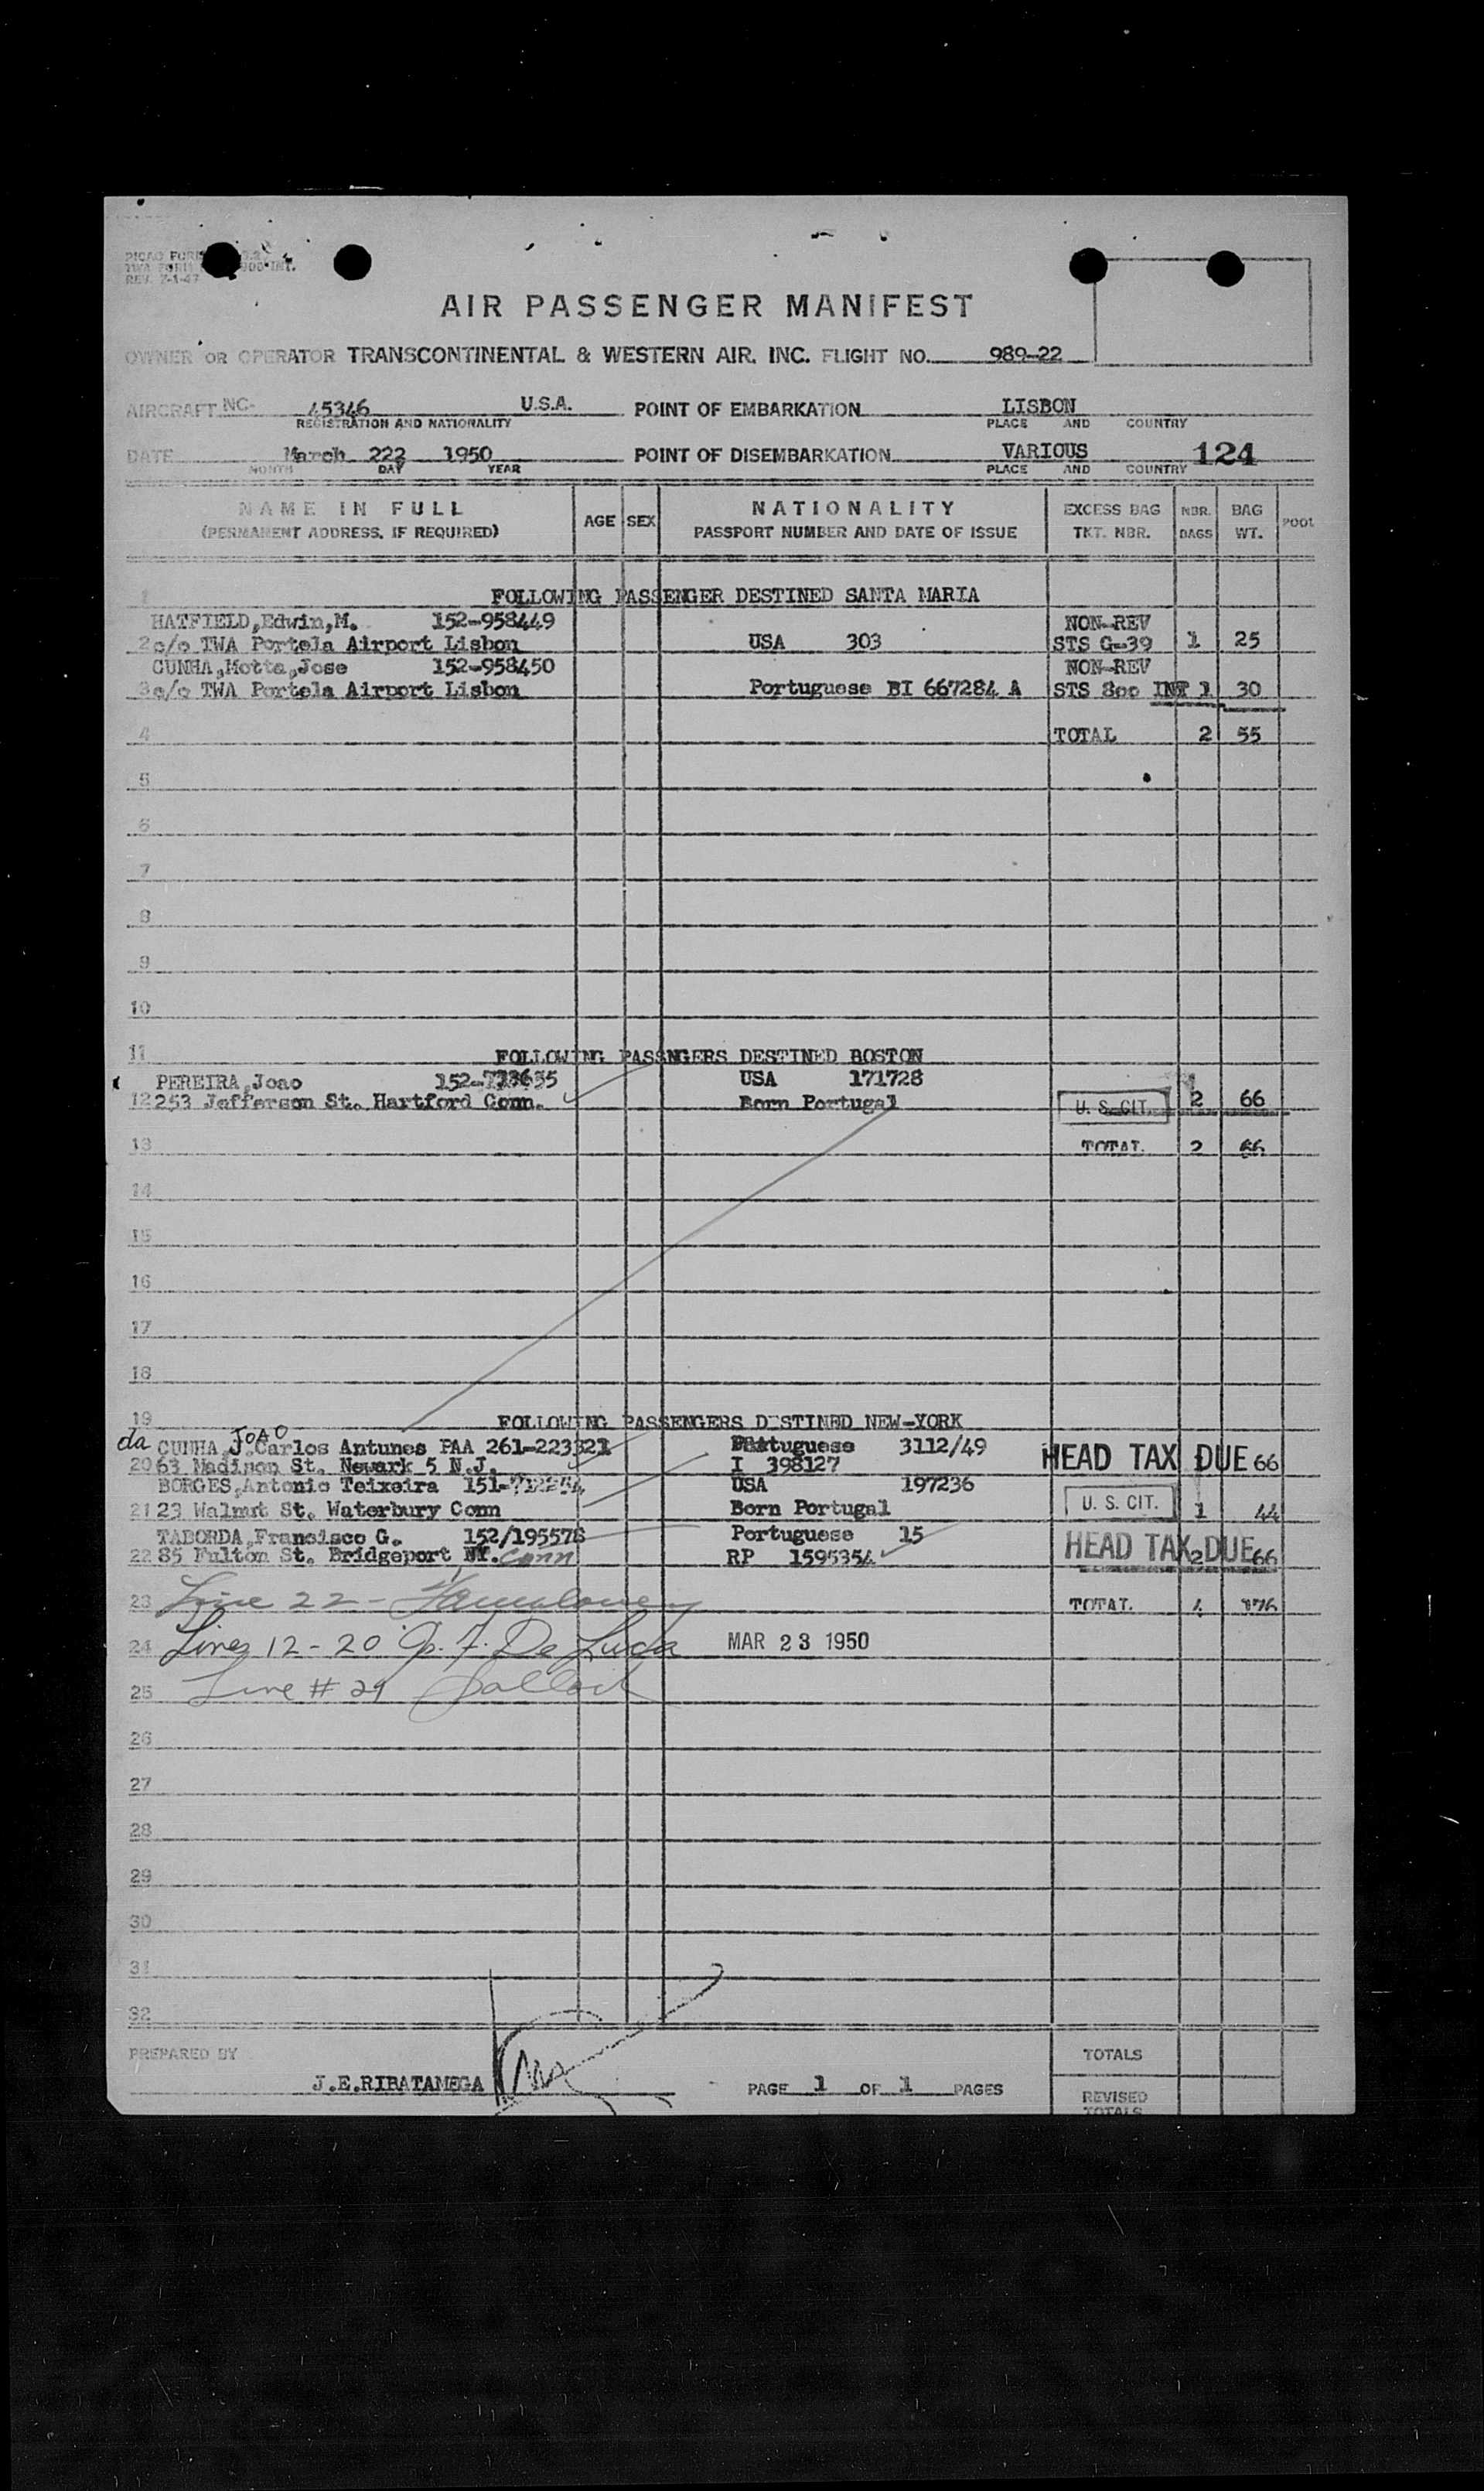 REV. 7-1-47
AIR PASSENGER MANIFEST
OWNER OR OPERATOR TRANSCONTINENTAL & WESTERN AIR, INC. FLIGHT NO. 989-22
AIRCRAFT NC- 45346 U.S.A. POINT OF EMBARKATION LISBON
REGISTRATION AND NATIONALITY PLACE AND COUNTRY
DATE March 222 1950 POINT OF DISEMBARKATION VARIOUS 124
MONTH DAY YEAR PLACE AND COUNTRY
NAME IN FULL AGE SEX NATIONALITY EXCESS BAG NBR. BAG POOL
(PERMANENT ADDRESS, IF REQUIRED) PASSPORT NUMBER AND DATE OF ISSUE TKT. NBR. BAGS WT.
1 FOLLOWING PASSENGER DESTINED SANTA MARIA
HATFIELD,Edwin,M. 152-958449 NON-REV
2 c/o TWA Portela Airport Lisbon USA 303 STS G-39 1 25
CUNHA,Motta,Jose 152-958450 NON-REV
3 c/o TWA Portela Airport Lisbon Portuguese BI 667284 A STS Spc INT 1 30
4 TOTAL 2 55
5
6
7
8
9
10
11 FOLLOWING PASSNGERS DESTINED BOSTON
PEREIRA,Joao USA 171728
12 253 Jefferson St. Hartford Conn. Born Portugal U. S. CIT. 2 66
13 TOTAL 2 66
14
15
16
17
18
19 FOLLOWING PASSENGERS DESTINED NEW-YORK
da CUNHA,J.Carlos Antunes JOAO PAA 261-223321 Portuguese 3112/49
20 63 Madison St. Newark 5 N.J. I 398127 HEAD TAX DUE 66
BORGES,Antonio Teixeira USA 197236
21 23 Walnut St. Waterbury Conn Born Portugal U. S. CIT. 1 44
TABORDA,Francisco G. 152/195578 Portuguese 15
22 85 Fulton St. Bridgeport NY. Conn RP 1595354 HEAD TAX DUE 2 66
23 Line 22 - TOTAL 4 176
24 Lines 12-20 J. F. De Luca MAR 23 1950
25 Line # 21
26
27
28
29
30
31
32
PREPARED BY TOTALS
J.E.RIBATAMEGA PAGE 1 OF 1 PAGES REVISED
TOTALS